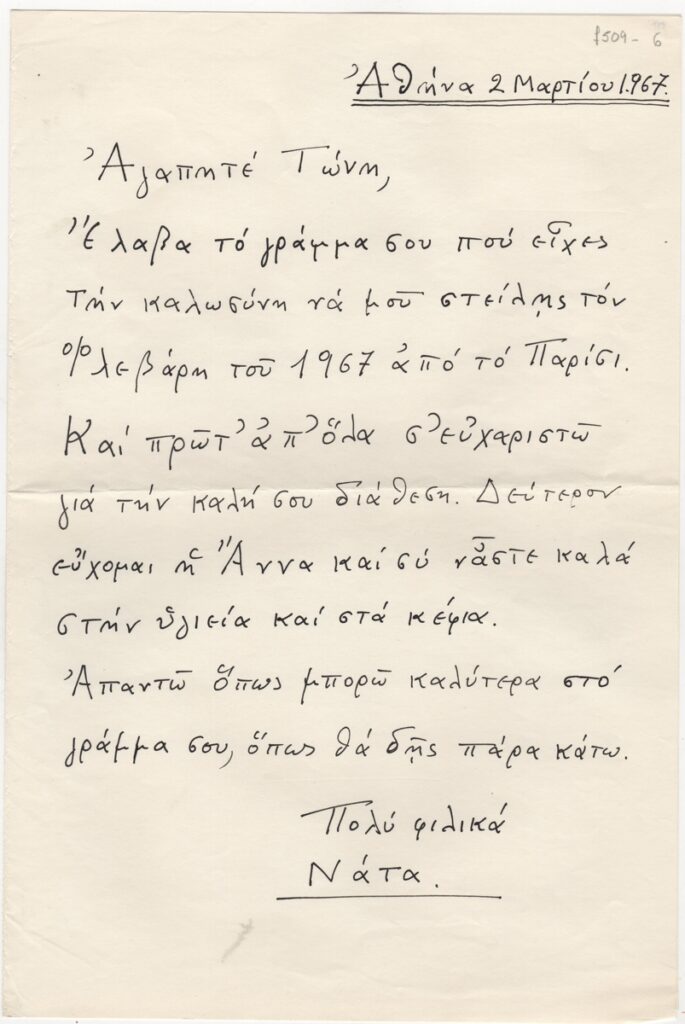 1509 - 6
Ἀθήνα 2 Μαρτίου 1.967.
Ἀγαπητέ Τώνη,
Ἔλαβα τό γράμμα σου πού εἶχες
τήν καλωσύνη νά μοῦ στείλῃς τόν
Φλεβάρη τοῦ 1967 ἀπό τό Παρίσι.
Καί πρῶτ' ἀπ' ὅλα σ' εὐχαριστῶ
γιά τήν καλή σου διάθεση. Δεύτερον
εὔχομαι ἡ Ἄννα καί σύ νἆστε καλά
στήν ὑγιεία καί στά κέφια.
Ἀπαντῶ ὅπως μπορῶ καλύτερα στό
γράμμα σου, ὅπως θά δῇς πάρα κάτω.
Πολύ φιλικά
Νάτα.